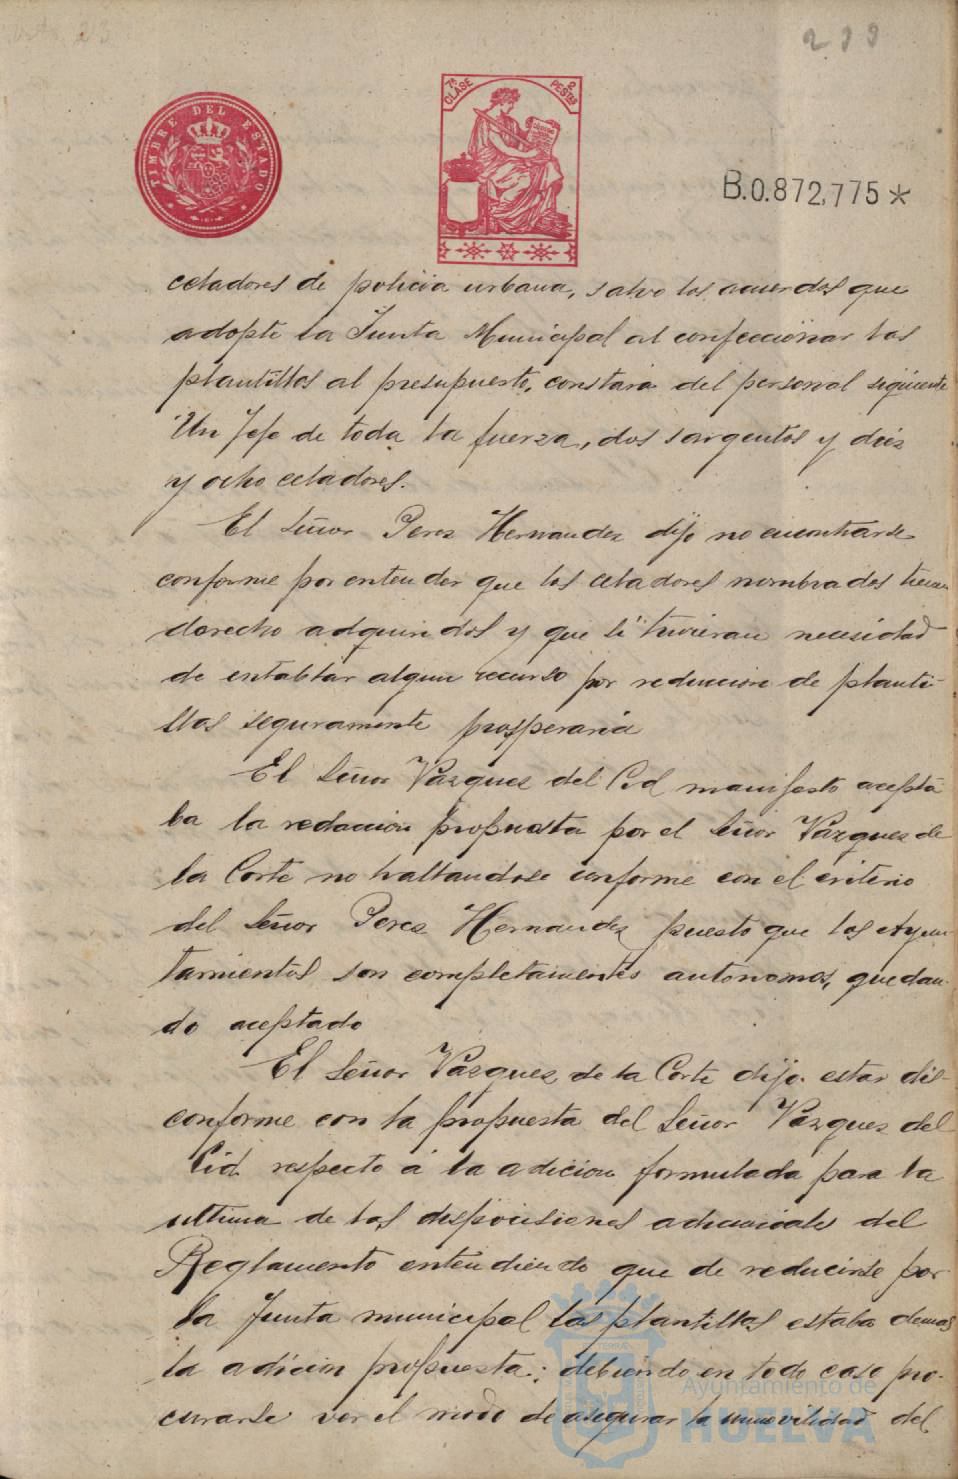 TIMBRE DEL ESTADO
7ª CLASE 2 PESTAS
B.0.872,775*
celadores de policia urbana, salvo los acuerdos que
adopte la Junta Municipal al confeccionar las
plantillas al presupuesto, constará del personal siguiente
Un Jefe de toda la fuerza, dos sargentos y diez
y ocho celadores.
El Señor Perez Hernandez dijo no encontrarse
conforme por entender que los celadores nombrados tienen
derecho adquiridos y que si tuvieran necesidad
de entablar algun recurso por reduccion de planti-
llas seguramente prosperaria
El Señor Vazquez del Cid manifesto acepta
ba la redaccion propuesta por el Señor Vazquez de
la Corte no hallandose conforme con el criterio
del Señor Perez Hernandez puesto que los Ayun
tamientos son completamentes autonomos, quedan-
do aceptado
El Señor Vazquez de la Corte dijo estar dis-
conforme con la propuesta del Señor Vazquez del
Cid respecto á la adicion formulada para la
ultima de las disposiciones del
Reglamento entendiendo que de reducirse por
la Junta municipal las plantillas estaba demas
la adicion propuesta; debiendo en todo caso pro-
curarse ver el modo de asegurar la inmovilidad del
Ayuntamiento de
HUELVA